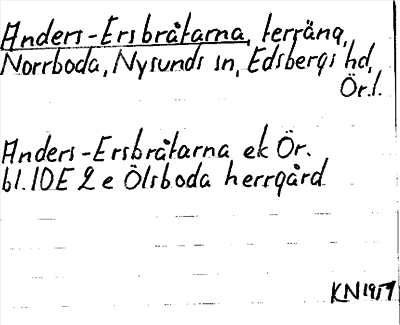 Anders-Ersbråtarna, terräng,
Norrboda, Nysunds sn, Edsbergs hd,
Ör.l.
Anders-Ersbråtarna ek Ör.
bl. 10E 2 e Ölsboda herrgård
KN 1957